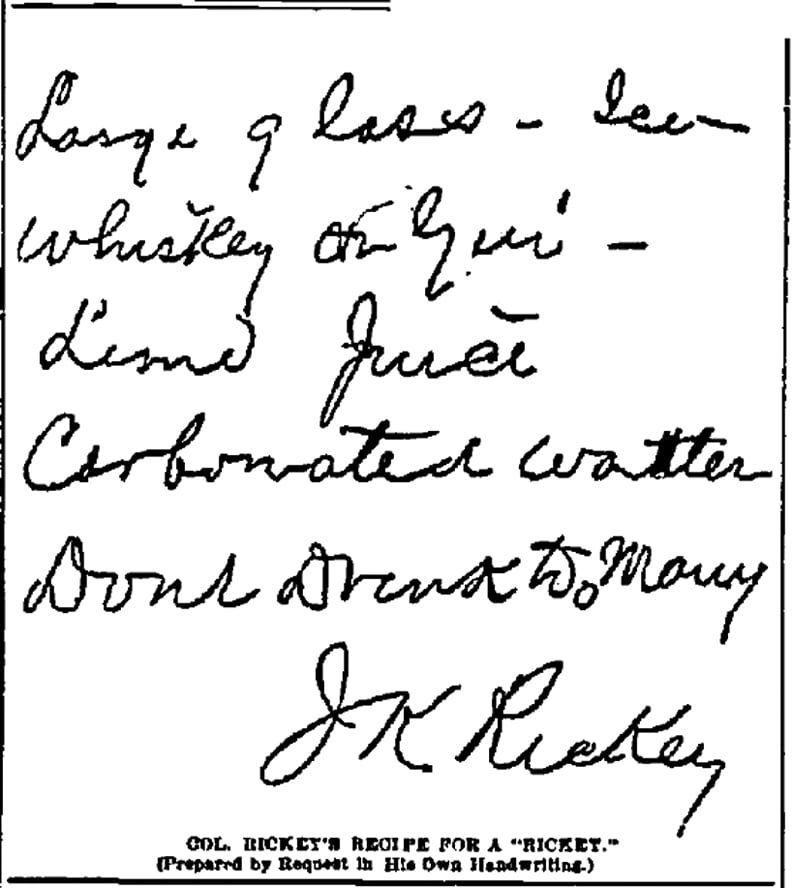 Large glases - Ice -
Whiskey or Gin -
Lime Juice
Carbonated Watter
Dont Drink To Many
J K Rickey
COL. RICKEY'S RECIPE FOR A "RICKEY."
(Prepared by Request in His Own Handwriting.)